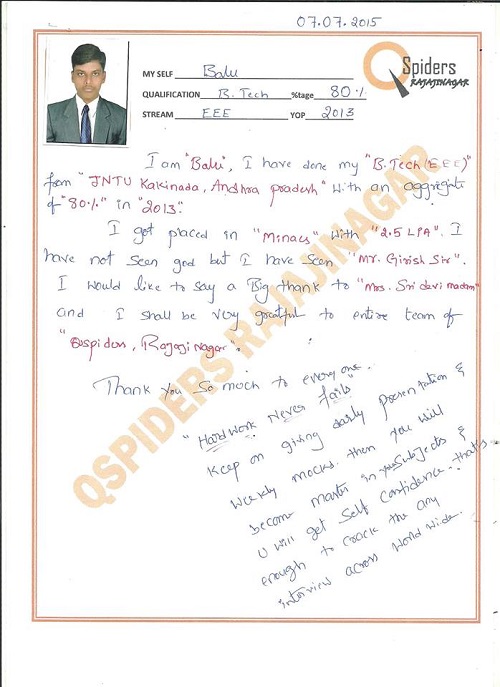 07.07.2015
QSpiders
RAJAJINAGAR
MY SELF Balu
QUALIFICATION B.Tech %tage 80%
STREAM EEE YOP 2013
I am "Balu", I have done my "B.Tech (EEE)"
from "JNTU Kakinada, Andhra pradesh" with an aggrigate
of "80%" in "2013".
I got placed in "Minacs" with "2.5 LPA". I
have not seen god but I have seen "Mr. Girish Sir".
I would like to say a Big thank to "Mrs. Sridevi madam"
and I shall be very greatful to entire team of
"Qspiders, Rajaji Nagar".
Thank you so much to every one.
"Hardwork Never fails"
Keep on giving daily presentation &
weekly mocks. then you will
become master in your subjects &
U will get Self Confidence. that's
enough to crack the any
interview across world wide.
QSPIDERS RAJAJINAGAR